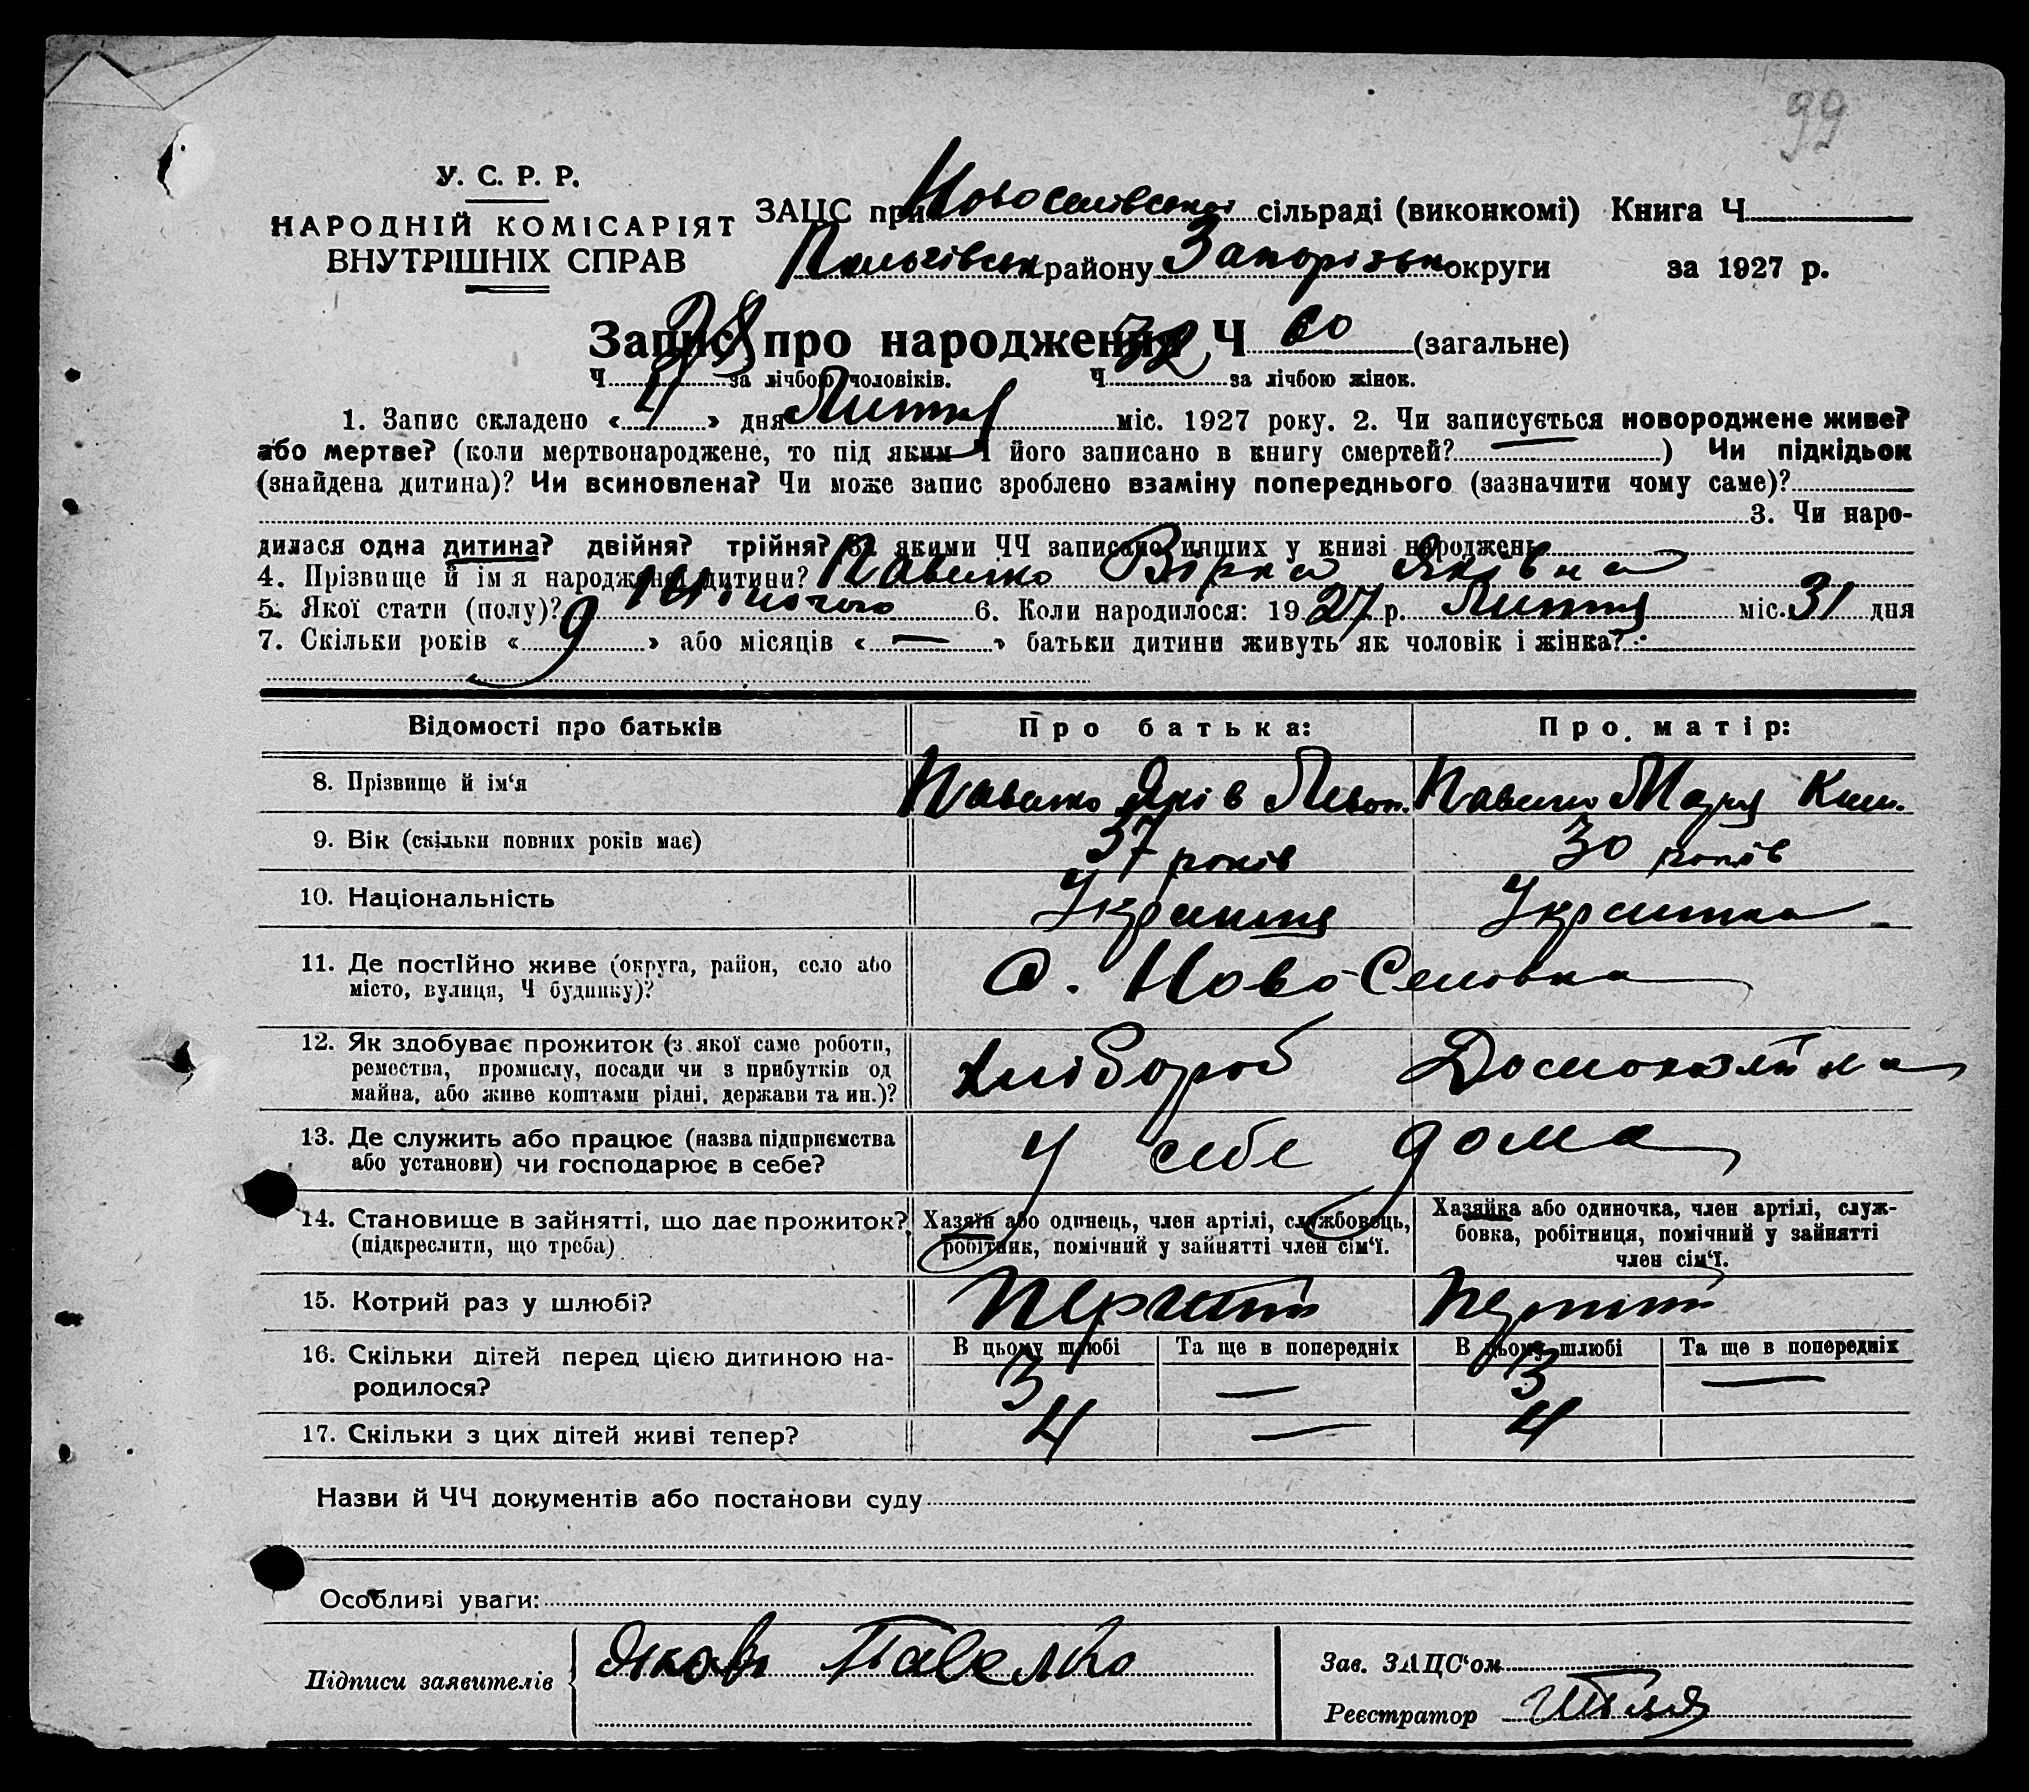 99
У. С. Р. Р.
НАРОДНІЙ КОМІСАРІЯТ
ВНУТРІШНІХ СПРАВ
ЗАЦС при Новоселівській сільраді (виконкомі) Книга Ч
району Запорізьк округи за 1927 р.
Запис про народження Ч 60 (загальне)
Ч 28 за лічбою чоловіків. Ч 32 за лічбою жінок.
1. Запис складено « » дня Липня міс. 1927 року. 2. Чи записується новороджене живе?
або мертве? (коли мертвонароджене, то під яким Ч його записано в книгу смертей? — ) Чи підкідьок
(знайдена дитина)? Чи всиновлена? Чи може запис зроблено взаміну попереднього (зазначити чому саме)?
3. Чи наро-
дилася одна дитина? двійня? трійня? За якими ЧЧ записано инших у книзі народжень
4. Прізвище й ім я народженої дитини? Павелко Вірка Яківна
5. Якої стати (полу)? Жіночого 6. Коли народилося: 19 27 р. Липня міс. 31 дня
7. Скільки років « 9 » або місяців « — » батьки дитини живуть як чоловік і жінка?
Відомості про батьків Про батька: Про матір:
8. Прізвище й ім‘я Павелко Яків Павелко Марія
9. Вік (скільки повних років має) 37 років 30 років
10. Національність Українця Українка
11. Де постійно живе (округа, район, село або
місто, вулиця, Ч будинку)? С. Ново-Селовка
12. Як здобуває прожиток (з якої саме роботи,
ремества, промислу, посади чи з прибутків од
майна, або живе коштами рідні, держави та ин.)? Хлібороб Домохазяйка
13. Де служить або працює (назва підприємства
або установи) чи господарює в себе? У себе дома
14. Становище в зайнятті, що дає прожиток?
(підкреслити, що треба)
Хазяїн або одинець, член артілі, службовець,
робітник, помічний у зайнятті член сім‘ї.
Хазяйка або одиночка, член артілі, служ-
бовка, робітниця, помічний у зайнятті
член сім‘ї.
15. Котрий раз у шлюбі? Перший Перший
В цьому шлюбі Та ще в попередніх В цьому шлюбі Та ще в попередніх
16. Скільки дітей перед цією дитиною на-
родилося? 3 — 3 —
17. Скільки з цих дітей живі тепер? 4 — 4
Назви й ЧЧ документів або постанови суду
Особливі уваги:
Підписи заявителів Яков Павелко
Зав. ЗАЦС‘ом
Реєстратор